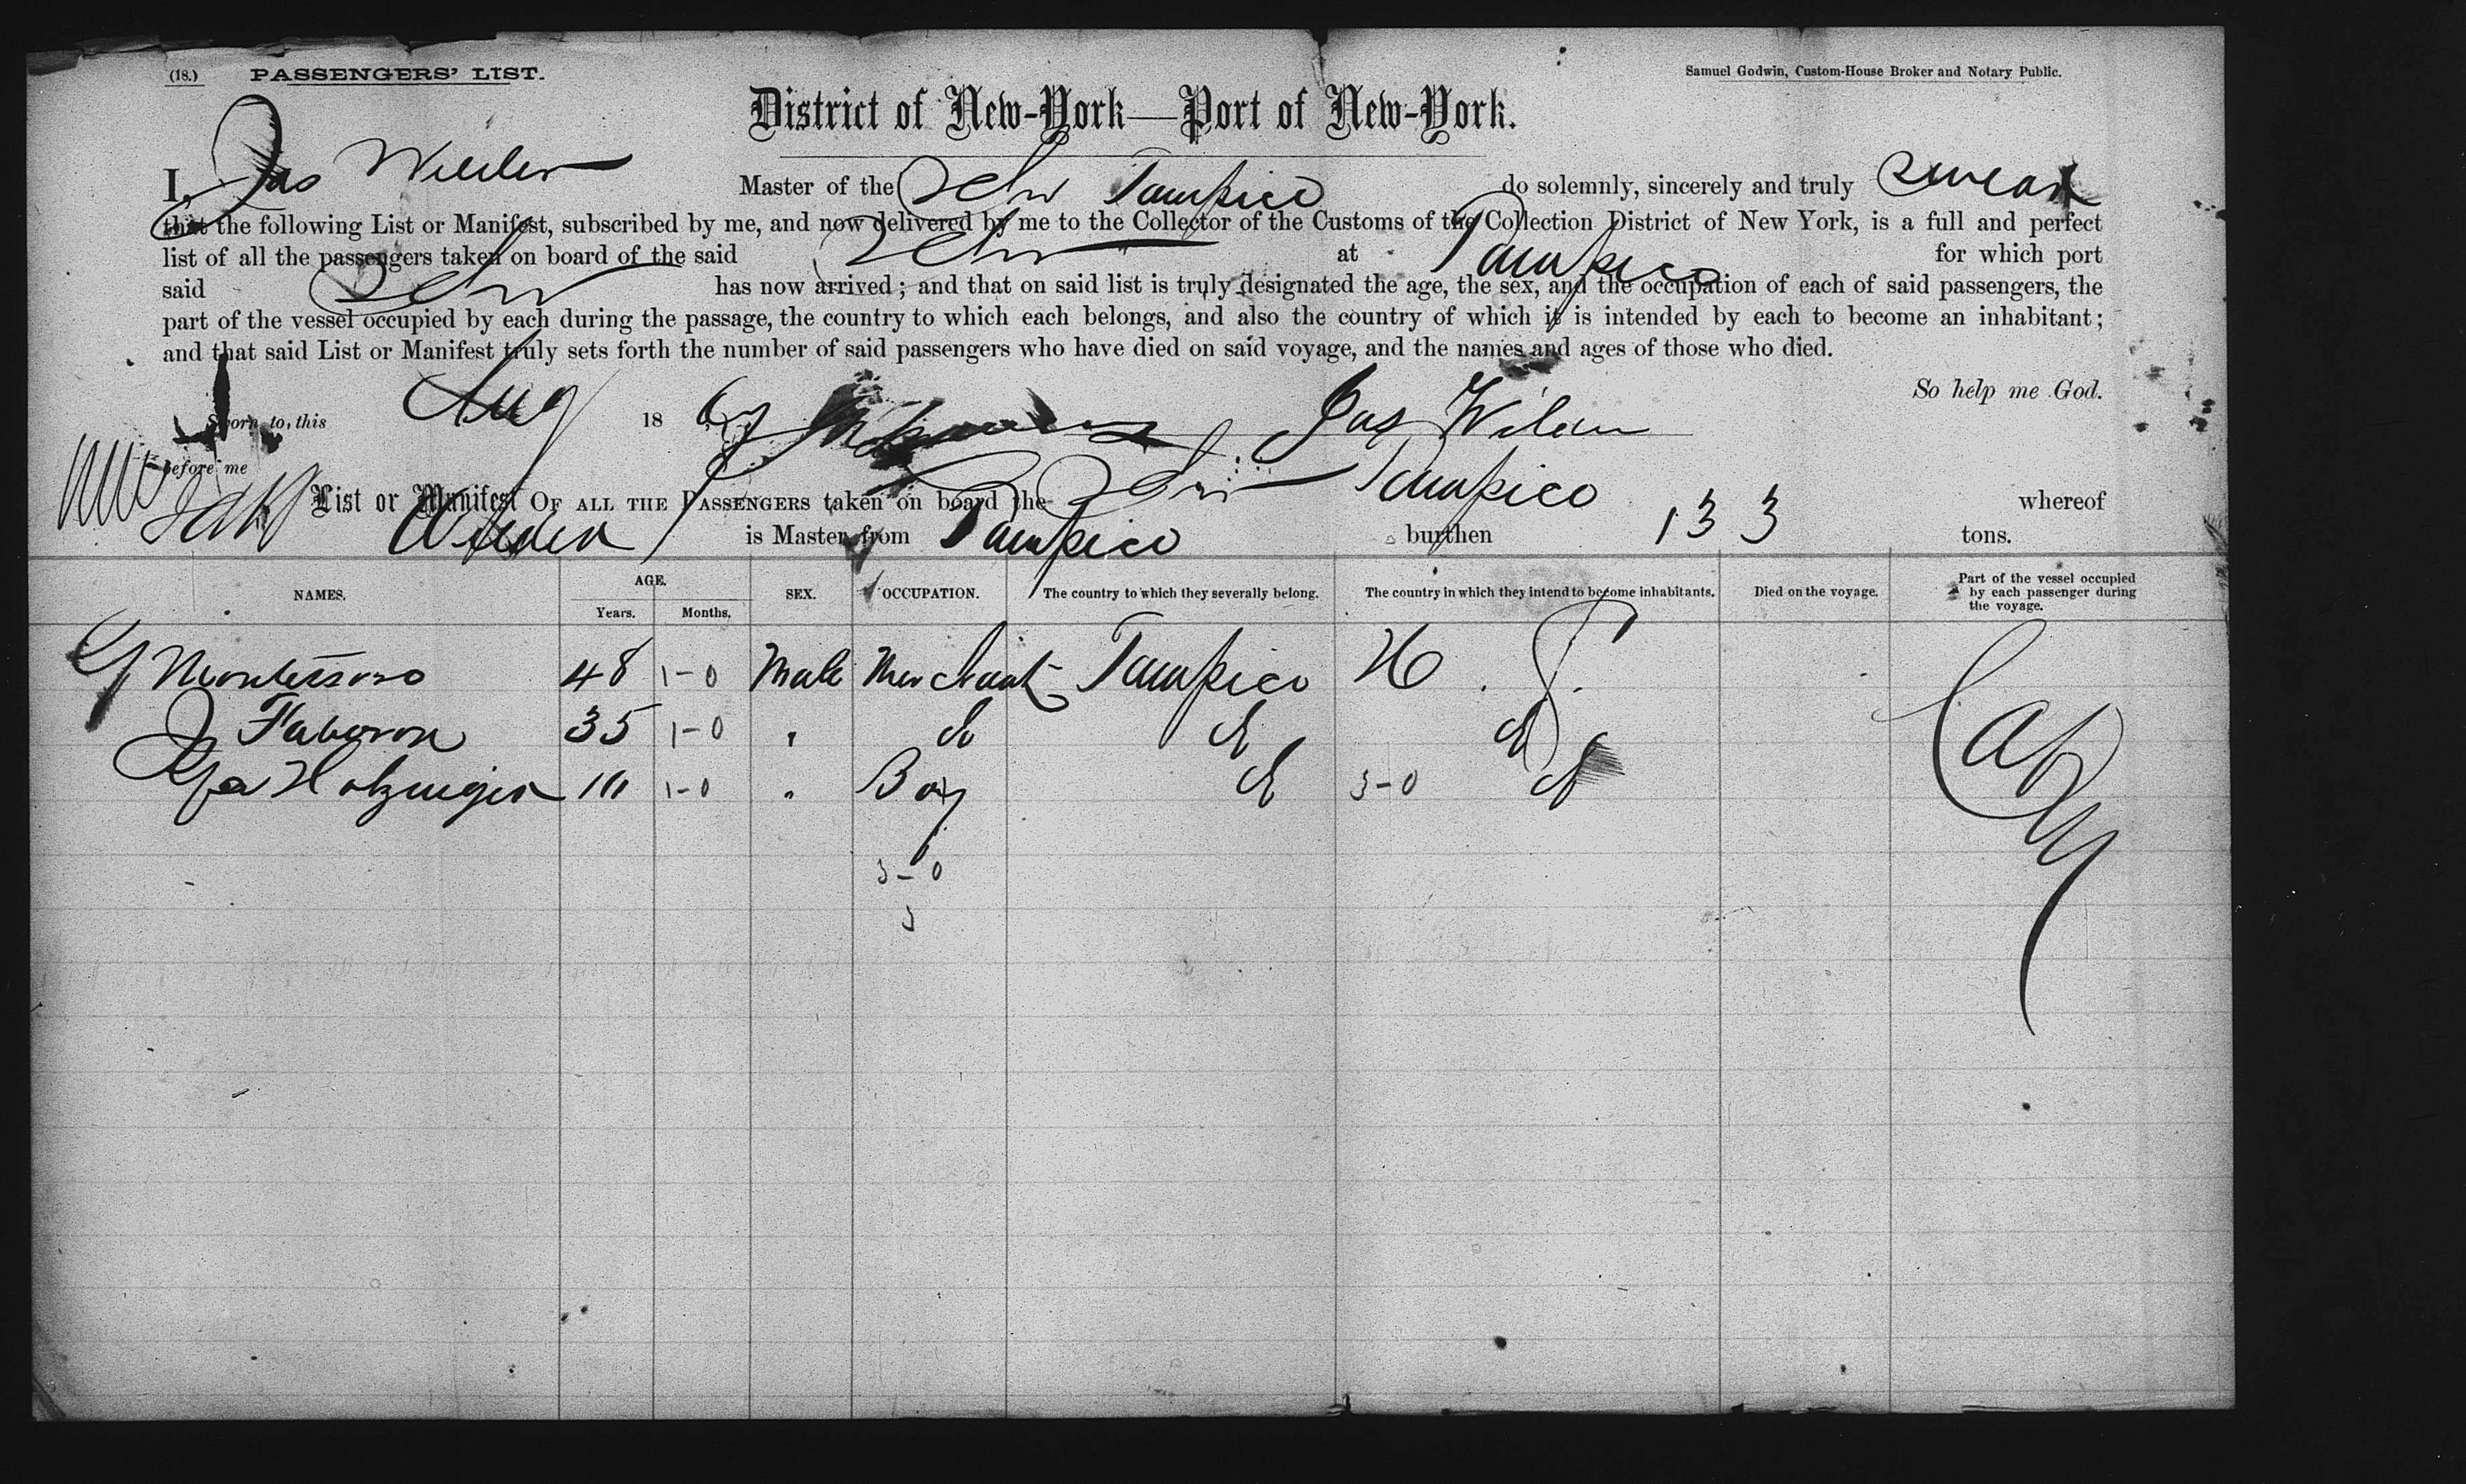 (18.) PASSENGERS' LIST.
Samuel Godwin, Custom-House Broker and Notary Public.
District of New-York—Port of New-York.
I, Jas Wilder Master of the Schr Tampico do solemnly, sincerely and truly swear
that the following List or Manifest, subscribed by me, and now delivered by me to the Collector of the Customs of the Collection District of New York, is a full and perfect
list of all the passengers taken on board of the said Schr at Tampico for which port
said Schr has now arrived; and that on said list is truly designated the age, the sex, and the occupation of each of said passengers, the
part of the vessel occupied by each during the passage, the country to which each belongs, and also the country of which it is intended by each to become an inhabitant;
and that said List or Manifest truly sets forth the number of said passengers who have died on said voyage, and the names and ages of those who died.
So help me God.
Sworn to, this Aug 18 67 Jas Wilder
before me
List or Manifest OF ALL THE PASSENGERS taken on board the Schr Tampico whereof
Wilder is Master, from Tampico burthen 133 tons.
NAMES. AGE. Years. Months. SEX. OCCUPATION. The country to which they severally belong. The country in which they intend to become inhabitants. Died on the voyage. Part of the vessel occupied by each passenger during the voyage.
48 1-0 Male Merchant Tampico
35 1-0 " do do do
1-0 " Boy do 3-0 do
3-0
3